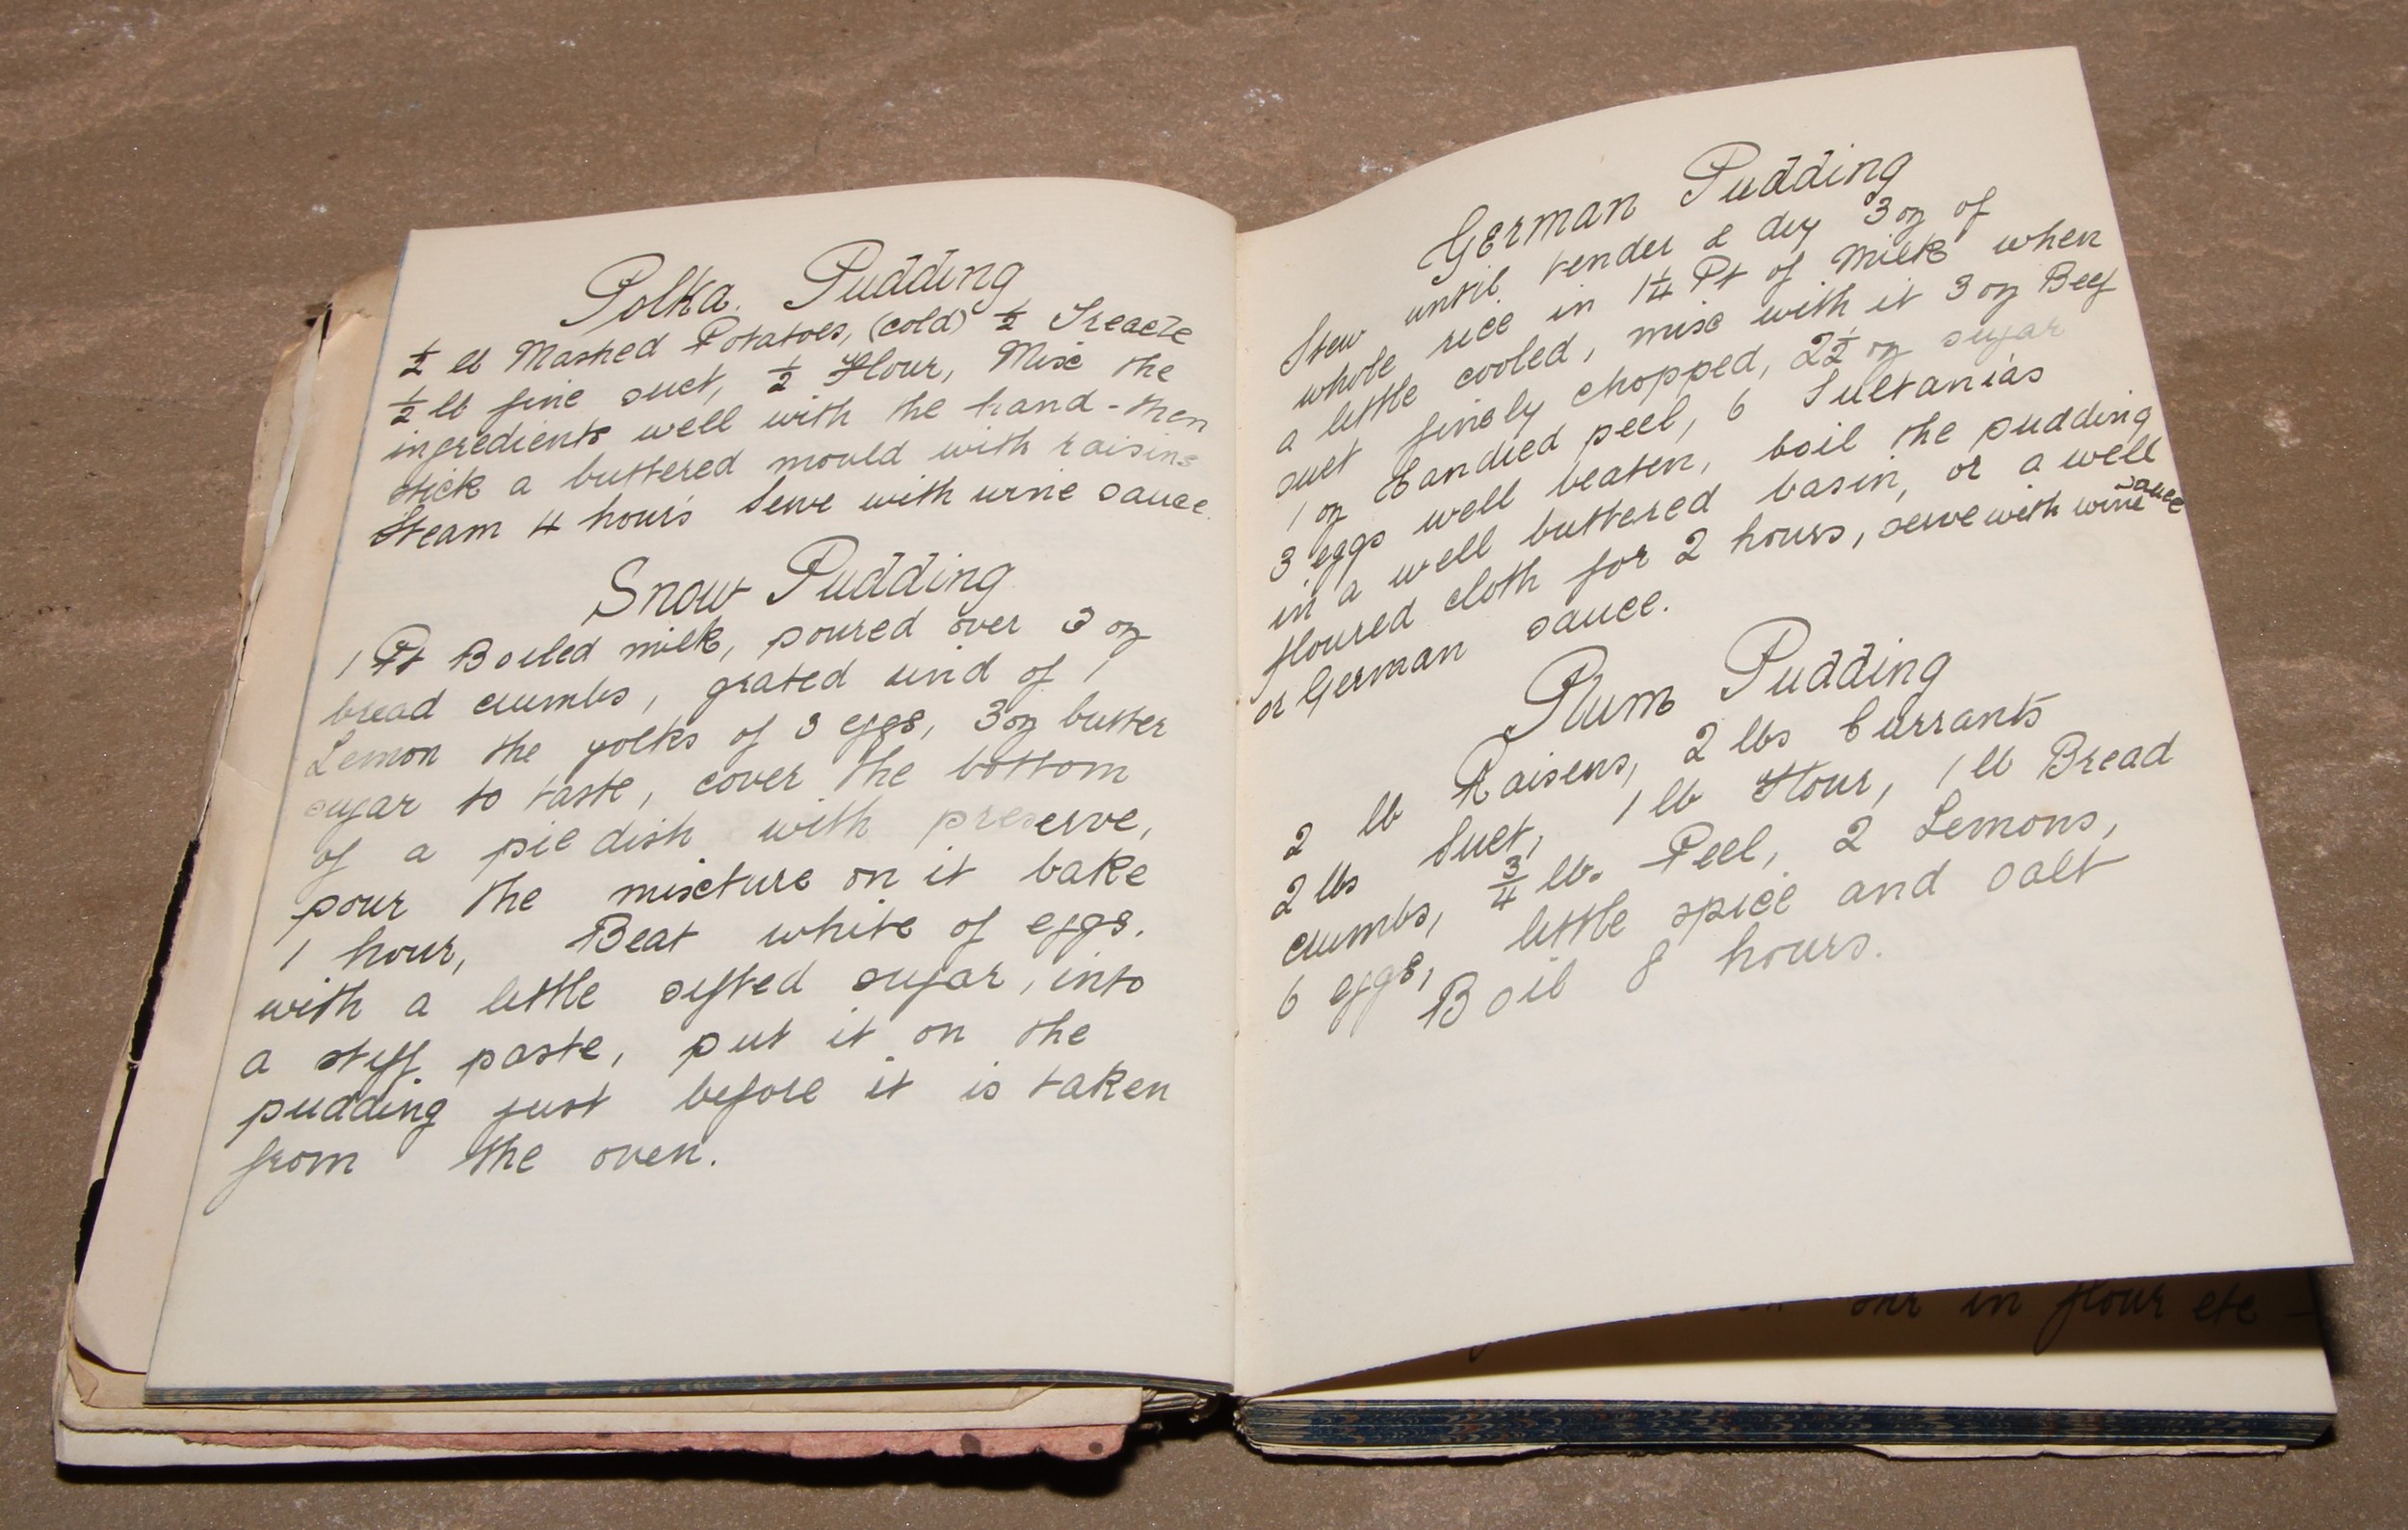 Polka Pudding
½ lb Mashed Potatoes, (cold) ½ Treacle
½ lb fine suet, ½ Flour, Mix the
ingredients well with the hand - then
stick a buttered mould with raisins
Steam 4 hours Serve with wine sauce.
Snow Pudding
1 Pt Boiled milk, poured over 3 oz
bread crumbs, grated rind of 1
Lemon the yolks of 3 eggs, 3 oz butter
sugar to taste, cover the bottom
of a pie dish with preserve,
pour the mixture on it bake
1 hour, Beat white of eggs.
with a little sifted sugar, into
a stiff paste, put it on the
pudding just before it is taken
from the oven.
German Pudding
Stew until tender & dry 3 oz of
whole rice in 1¼ Pt of Milk when
a little cooled, mix with it 3 oz Beef
suet finely chopped, 2½ oz sugar
1 oz Candied peel, 6 Sultanias
3 eggs well beaten, boil the pudding
in a well buttered basin, or a well
floured cloth for 2 hours, serve with wine sauce
or German sauce.
Plum Pudding
2 lb Raisens, 2 lbs Currants
2 lbs Suet, 1 lb Flour, 1 lb Bread
crumbs, ¾ lb. Peel, 2 Lemons,
6 eggs, little spice and salt
Boil 8 hours.
in flour etc -